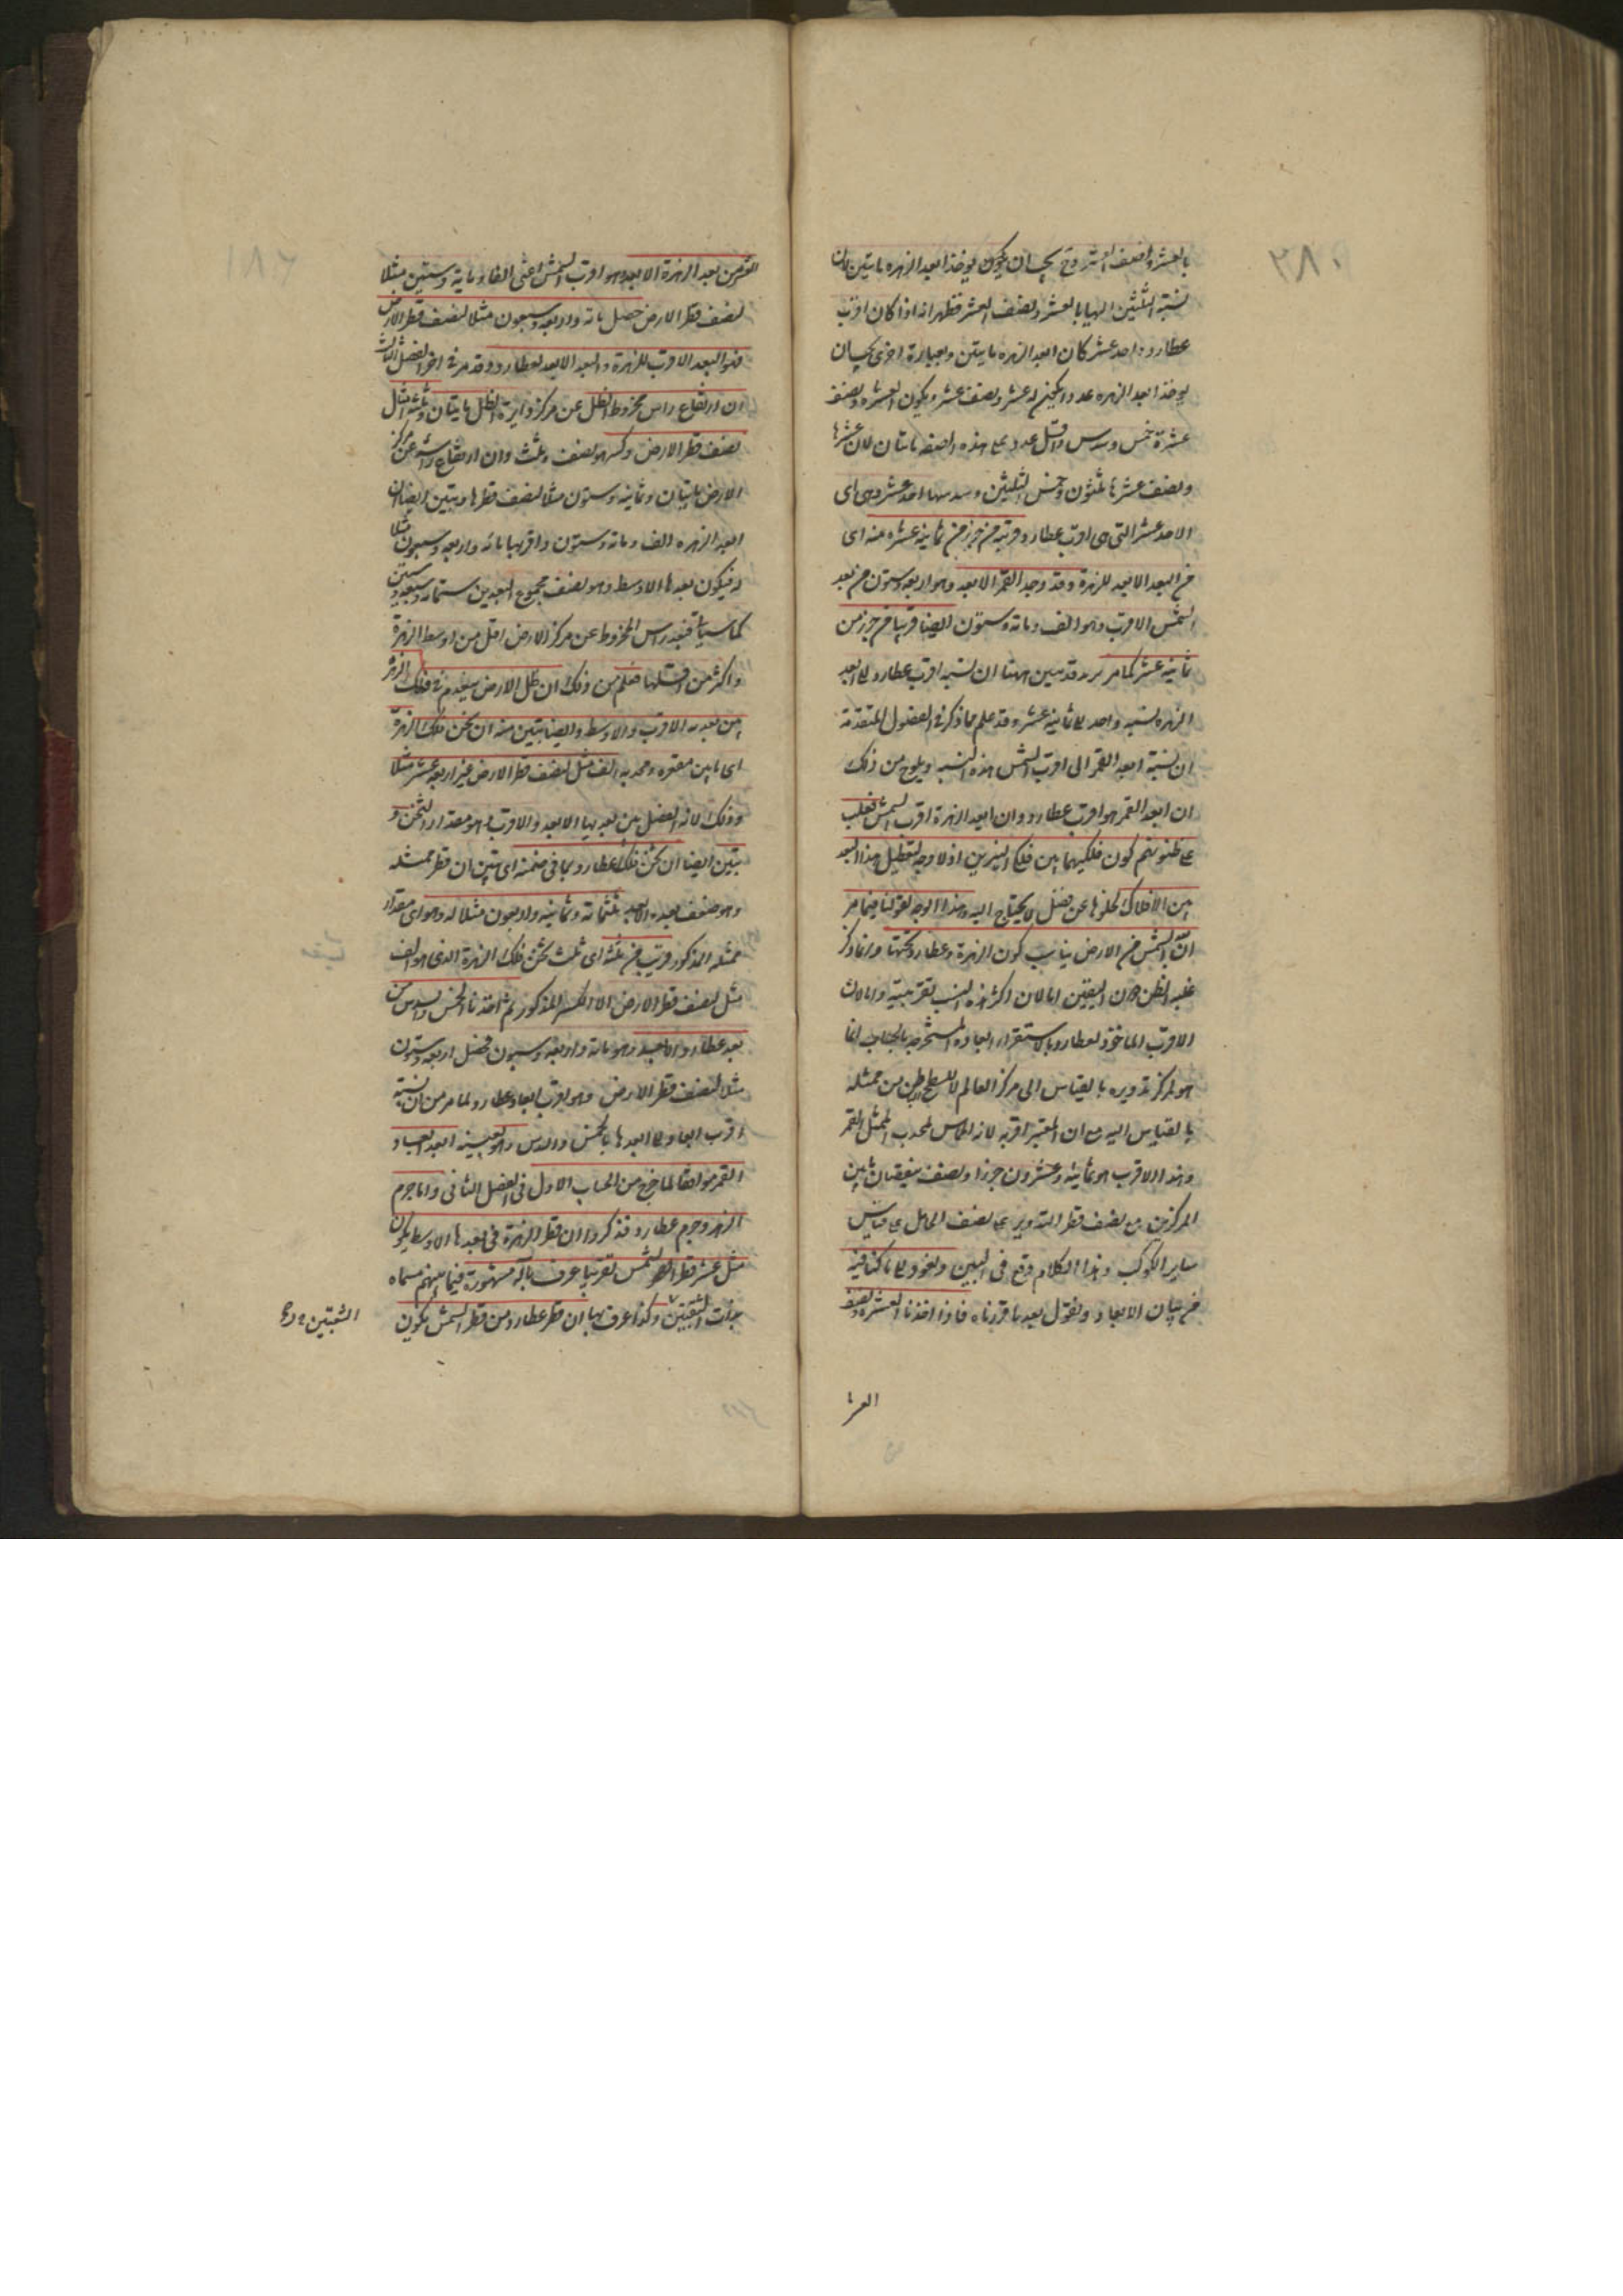 ٢٨٠
بالعشر ونصف العشر وح يجب ان يكون يوخذ ابعد الزهره مايتين لان
نسبة الثلثين اليها بالعشر ونصف العشر فظهر انه اذا كان اقرب
عطارد واحد عشر كان ابعد الزهره مايتين وبعبارة اخرى يجب ان
يوخذ ابعد الزهره عددا يكون له عشر ونصف عشر ويكون لعشره ونصف
عشره خمس وسدس واقل عدد على هذه الصفه مايتان لان عشرها
ونصف عشرها ثلثون وخمس الثلثين وسدسها احد عشر وهى اى
الاحد عشر التى هى اقرب عطارد قريبة من جزء من ثمانية عشره منه اى
من البعد الابعد للزهرة وقد وجد القمر الابعد وهو اربعة وستون من بعد
الشمس الاقرب وهو الف ومائة وستون ايضا قريبا من جزء من
ثمانية عشر كما مر وقد تبين ههنا ان نسبة اقرب عطارد الى ابعد
الزهره نسبة واحد الى ثمانية عشر وقد علم مما ذكر فى الفصول المتقدمة
ان نسبة ابعد القمر الى اقرب الشمس هذه النسبة ويلوح من ذلك
ان ابعد القمر هو اقرب عطارد وان ابعد الزهرة اقرب الشمس فغلب
على ظنونهم كون فلكيهما بين فلكى النيرين اذ لا وجه لتعطيل هذا البعد
بين الافلاك لخلوها عن فضل لا يحتاج اليه وهذا الوجه لقولنا فيما مر
ان بعد الشمس من الارض يناسب كون الزهرة وعطارد تحتها وانما ذكر
غلبه الظن دون اليقين اما لان اكثر هذه النسب تقريبية واما لان
الاقرب الماخوذ لعطارد بالاستقراء ابعاده المستخرجة بالحساب انما
هو لمركز تدويره بالقياس الى مركز العالم لا للسطح الباطن من ممثله
بالقياس اليه مع ان المعتبر اقربه لانه المماس لمحدب الممثل القمر
وهذا الاقرب هو ثمانية وعشرون جزءا ونصف بنقصان ما بين
المركزين مع نصف قطر التدوير عن نصف الحامل على قياس
ساير الكواكب وهذا الكلام وقع فى البين ونعود الى ما كنا فيه
من بيان الابعاد ونقول بعد ما قررناه فاذا اخذنا العشر ونصف
العشر
العشر من بعد الزهرة الابعد وهو اقرب الشمس اعنى الفا ومايه وستين مثلا
لنصف قطر الارض حصل مائة واربعة وسبعون مثلا لنصف قطر الارض
فهو البعد الاقرب للزهرة والبعد الابعد لعطارد وقد مر فى اخر الفصل الثالث
ان ارتفاع راس مخروط الظل عن مركز دايرة الظل مايتان وثلثة امثال
نصف قطر الارض وكسر هو نصف وثلث وان ارتفاع راسه عن مركز
الارض مايتان وثمانية وستون مثلا لنصف قطرها وتبين ايضا ان
ابعد الزهره الف ومائة وستون واقربها مائة واربعة وسبعون مثلا
له فيكون بعدها الاوسط وهو نصف مجموع البعدين ستمائة وسبعة وستين
كما سياتى فبعد راس المخروط عن مركز الارض اقل من اوسط الزهرة
واكثر من اقلها فعلم من ذلك ان ظل الارض ينعدم فى فلك الزهرة
بين بعديه الاقرب والاوسط وايضا تبين منه ان ثخن فلك الزهرة
اى ما بين مقعره ومحدبه الف مثل لنصف قطر الارض غير اربعة عشر مثلا
وذلك لانه الفضل بين بعديها الابعد والاقرب وهو مقدار الثخن و
تبين ايضا ان ثخن فلك عطارد بما فى ضمنه اى تبين ان قطر ممثله
وهو ضعف بعده الابعد ثلثمائة وثمانية واربعون مثلا له وهو اى مقدار
ممثله المذكور قريب من ثلثه اى ثلث ثخن فلك الزهرة الذى هو الف
مثل لنصف قطر الارض الا الكسر المذكور ثم اخذنا الخمس والسدس من
بعد عطارد الابعد وهو مائة واربعة وسبعون فحصل اربعة وستون
مثلا لنصف قطر الارض وهو اقرب ابعاد عطارد لما مر من ان نسبة
اقرب ابعاده الى ابعدها بالخمس والسدس وهو بعينه ابعد ابعاد
القمر موافقا لما خرج من الحساب الاول فى الفصل الثانى واما جرم
الزهره وجرم عطارد فذكروا ان قطر الزهرة فى بعدها الاوسط يكون
مثل عشر قطر الشمس تقريبا عرف بآلة مشهورة فيما بينهم مسماه
بذات الثقبتين وكذا عرف بها ان قطر عطارد من قطر الشمس يكون
الشعبتين